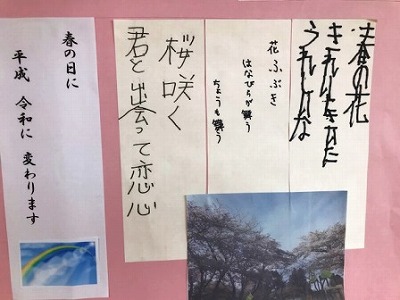 春の花
きれいにさいた
うれしいな
花ふぶき
はなびらが舞う
ちょうも舞う
桜咲く
君と出会って恋心
春の日に
平成 令和に 変わります